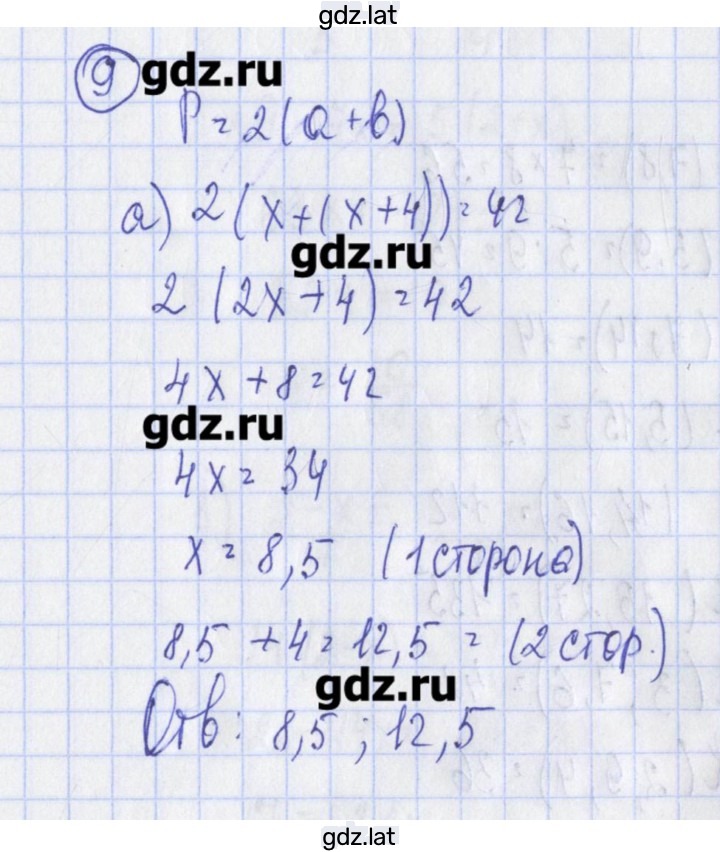 gdz.lat
9 gdz.ru
P = 2(a+b)
а) 2(x+(x+4)) = 42
gdz.ru
2(2x+4) = 42
4x+8=42
gdz.ru
4x = 34
x = 8,5 (1 сторона)
8,5 + 4 = 12,5 = (2 стор.)
gdz.ru
Отв: 8,5 ; 12,5
gdz.lat